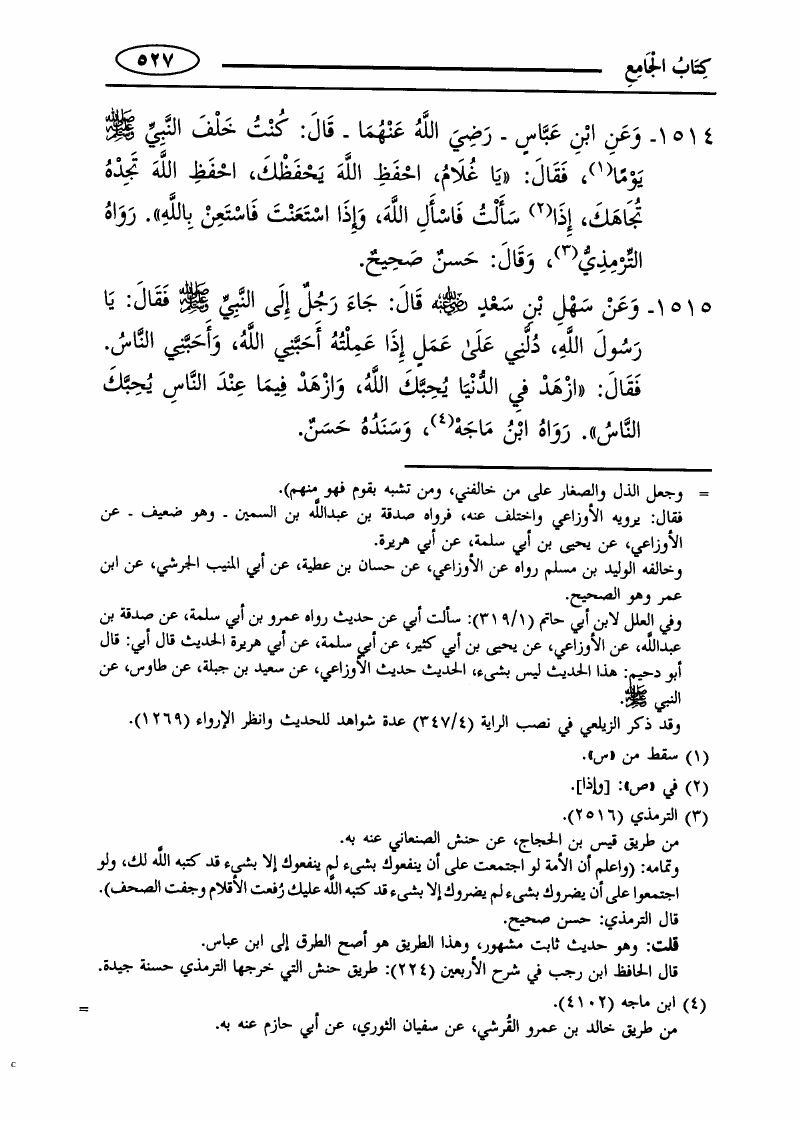 كِتَابُ الْجَامِعِ
٥٢٧
١٥١٤ـ وَعَنِ ابْنِ عَبَّاسٍ ـ رَضِيَ اللَّهُ عَنْهُمَا ـ قَالَ: كُنْتُ خَلْفَ النَّبِيِّ ﷺ
يَوْمًا(١)، فَقَالَ: «يَا غُلَامُ، احْفَظِ اللَّهَ يَحْفَظْكَ، احْفَظِ اللَّهَ تَجِدْهُ
تُجَاهَكَ، إِذَا(٢) سَأَلْتُ فَاسْأَلِ اللَّهَ، وَإِذَا اسْتَعَنْتَ فَاسْتَعِنْ بِاللَّهِ». رَوَاهُ
التِّرْمِذِيُّ(٣)، وَقَالَ: حَسنٌ صَحِيحٌ.
١٥١٥ـ وَعَنْ سَهْلِ بْنِ سَعْدٍ رضي الله عنه قَالَ: جَاءَ رَجُلٌ إِلَى النَّبِيِّ ﷺ فَقَالَ: يَا
رَسُولَ اللَّهِ، دُلَّنِي عَلَى عَمَلٍ إِذَا عَمِلْتُهُ أَحَبَّنِي اللَّهُ، وَأَحَبَّنِي النَّاسُ.
فَقَالَ: «ازْهَدْ فِي الدُّنْيَا يُحِبَّكَ اللَّهُ، وَازْهَدْ فِيمَا عِنْدَ النَّاسِ يُحِبَّكَ
النَّاسُ». رَوَاهُ ابْنُ مَاجَهْ(٤)، وَسَنَدُهُ حَسَنٌ.
= وجعل الذل والصغار على من خالفني، ومن تشبه بقوم فهو منهم).
فقال: يرويه الأوزاعي واختلف عنه، فرواه صدقة بن عبدالله بن السمين ـ وهو ضعيف ـ عن
الأوزاعي، عن يحيى بن أبي سلمة، عن أبي هريرة.
وخالفه الوليد بن مسلم رواه عن الأوزاعي، عن حسان بن عطية، عن أبي المنيب الجرشي، عن ابن
عمر وهو الصحيح.
وفي العلل لابن أبي حاتم (٣١٩/١): سألت أبي عن حديث رواه عمرو بن أبي سلمة، عن صدقة بن
عبدالله، عن الأوزاعي، عن يحيى بن أبي كثير، عن أبي سلمة، عن أبي هريرة الحديث قال أبي: قال
أبو دحيم: هذا الحديث ليس بشيء، الحديث حديث الأوزاعي، عن سعيد بن جبلة، عن طاوس، عن
النبي ﷺ.
وقد ذكر الزيلعي في نصب الراية (٣٤٧/٤) عدة شواهد للحديث وانظر الإرواء (١٢٦٩).
(١) سقط من «س».
(٢) في «ص»: [وإذا].
(٣) الترمذي (٢٥١٦).
من طريق قيس بن الحجاج، عن حنش الصنعاني عنه به.
وتمامه: (واعلم أن الأمة لو اجتمعت على أن ينفعوك بشيء لم ينفعوك إلا بشيء قد كتبه الله لك، ولو
اجتمعوا على أن يضروك بشيء لم يضروك إلا بشيء قد كتبه الله عليك رُفعت الأقلام وجفت الصحف).
قال الترمذي: حسن صحيح.
قلت: وهو حديث ثابت مشهور، وهذا الطريق هو أصح الطرق إلى ابن عباس.
قال الحافظ ابن رجب في شرح الأربعين (٢٢٤): طريق حنش التي خرجها الترمذي حسنة جيدة.
(٤) ابن ماجه (٤١٠٢).
من طريق خالد بن عمرو القُرشي، عن سفيان الثوري، عن أبي حازم عنه به.
=
c